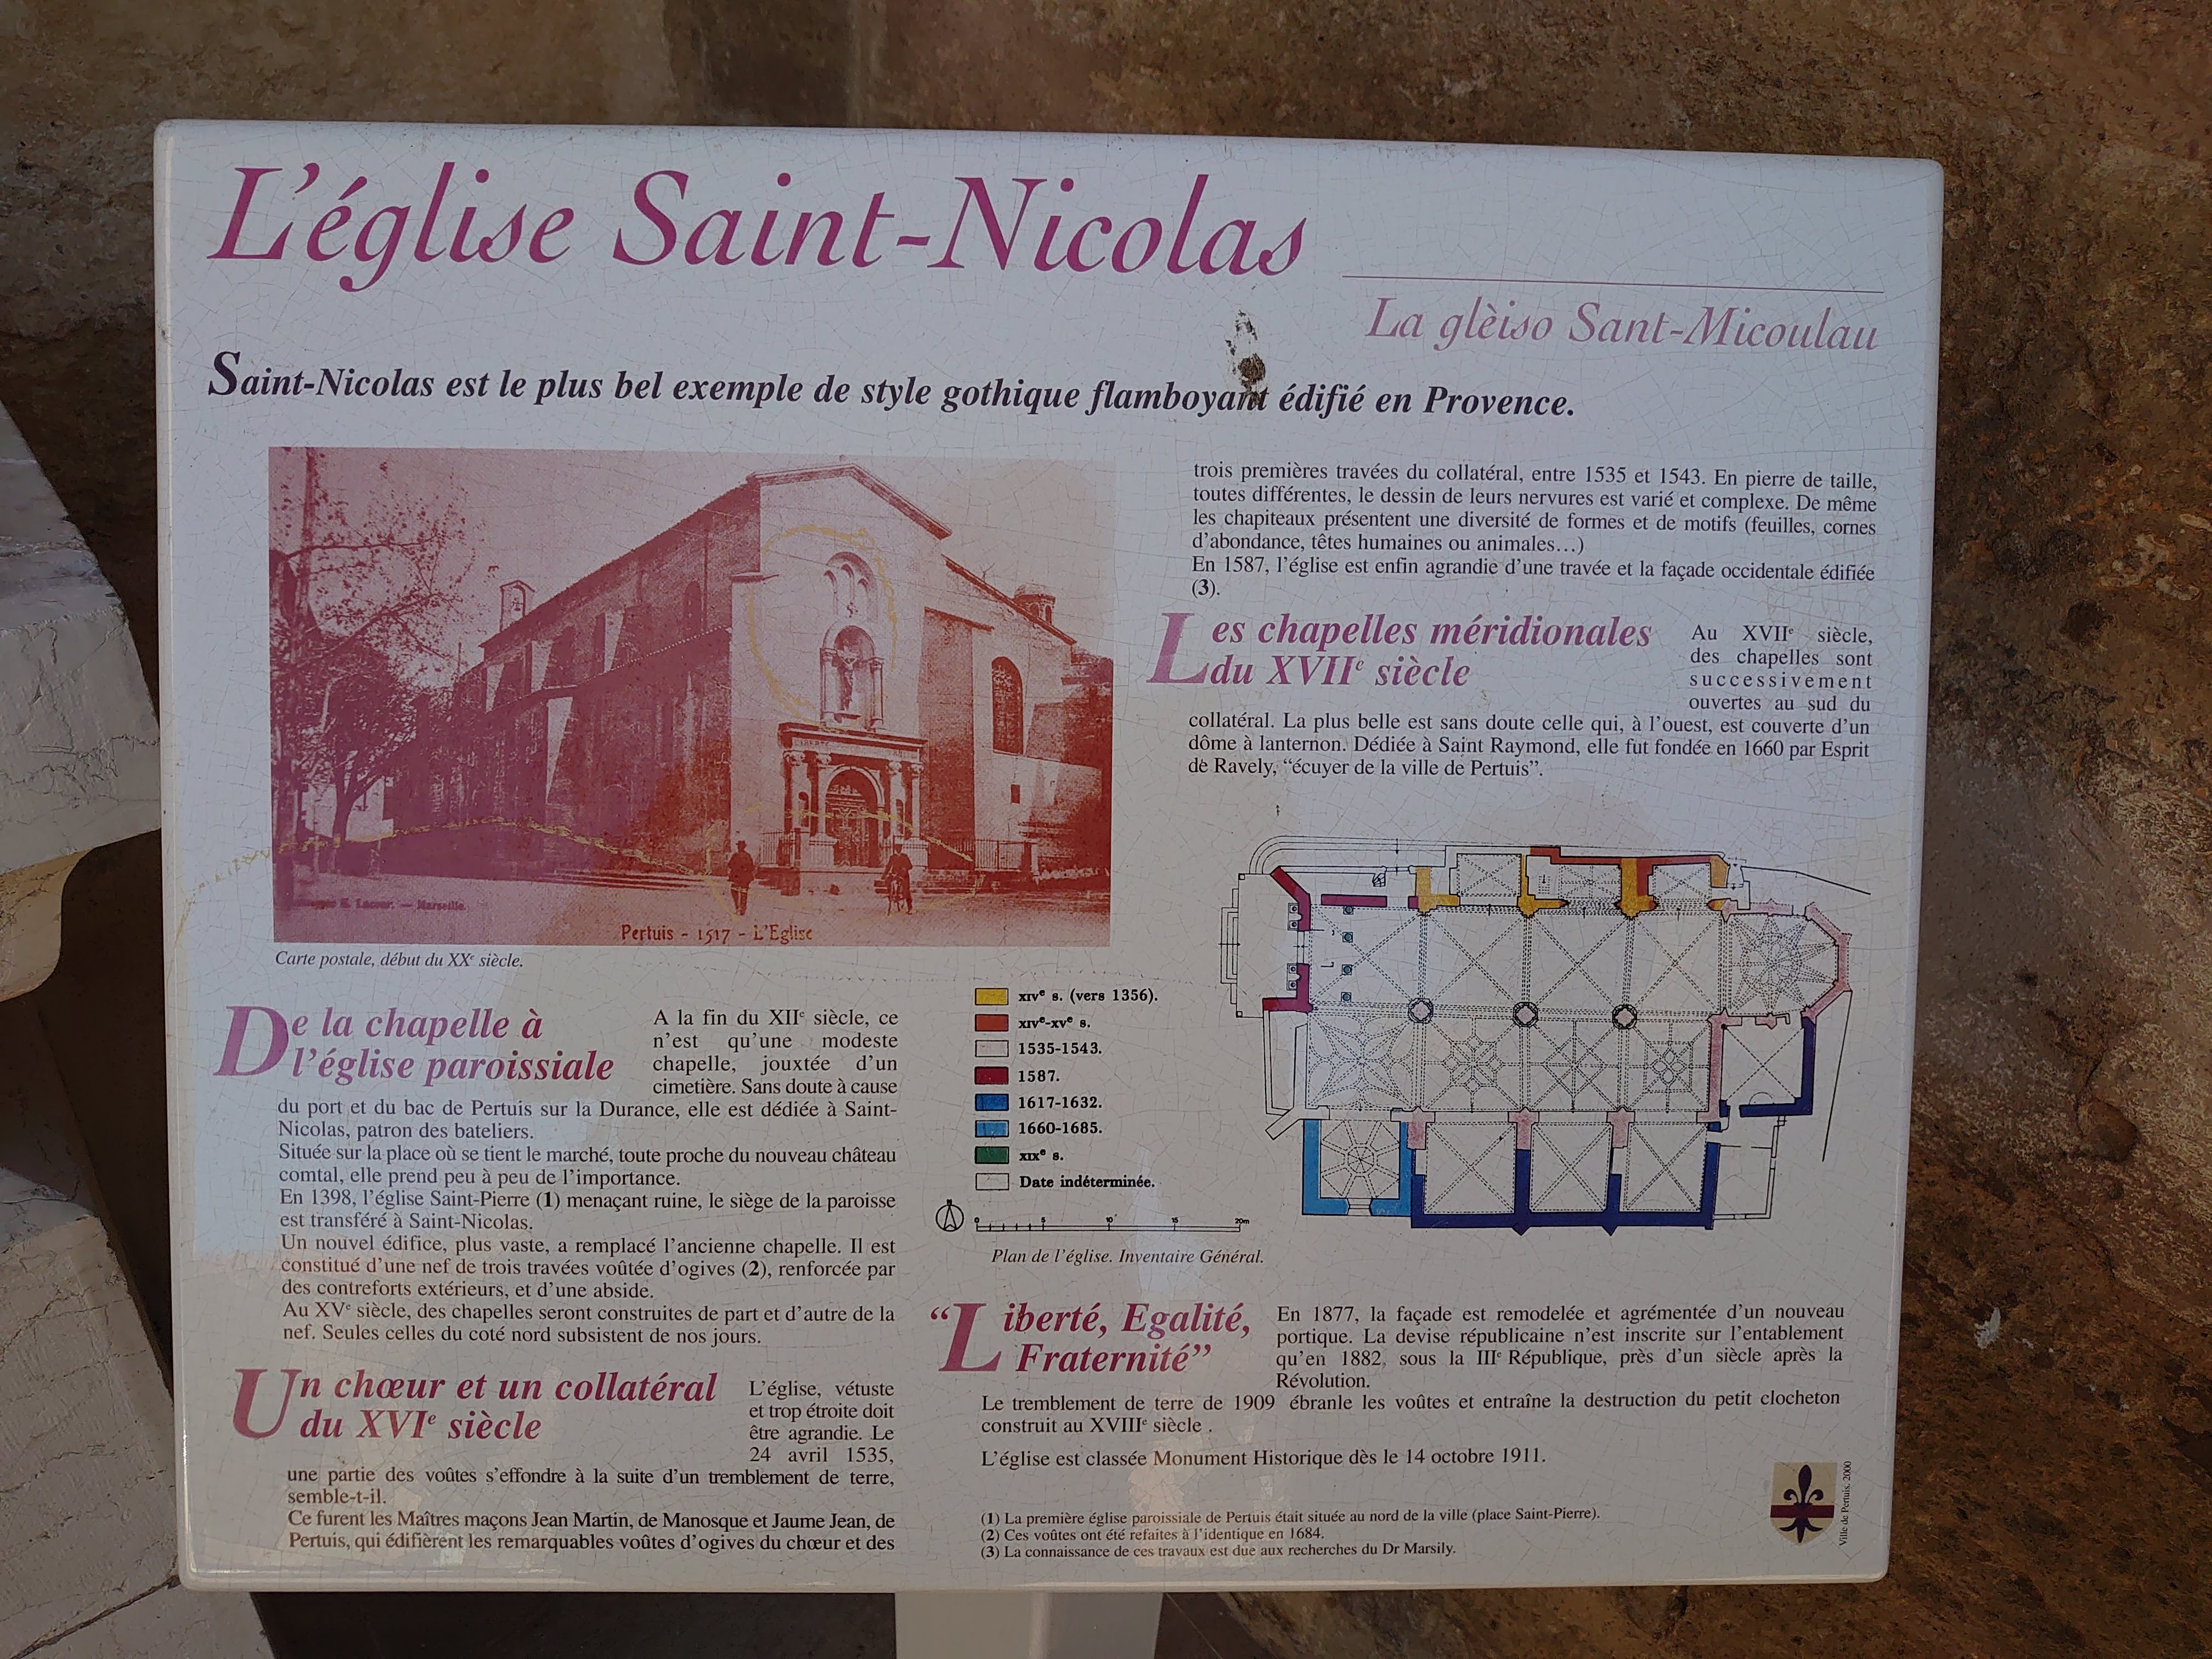 L'église Saint-Nicolas
La glèiso Sant-Micoulau
Saint-Nicolas est le plus bel exemple de style gothique flamboyant édifié en Provence.
E. Lacour. — Marseille.
Pertuis - 1517 - L'Eglise
Carte postale, début du XXe siècle.
De la chapelle à
l'église paroissiale
A la fin du XIIe siècle, ce
n'est qu'une modeste
chapelle, jouxtée d'un
cimetière. Sans doute à cause
du port et du bac de Pertuis sur la Durance, elle est dédiée à Saint-
Nicolas, patron des bateliers.
Située sur la place où se tient le marché, toute proche du nouveau château
comtal, elle prend peu à peu de l'importance.
En 1398, l'église Saint-Pierre (1) menaçant ruine, le siège de la paroisse
est transféré à Saint-Nicolas.
Un nouvel édifice, plus vaste, a remplacé l'ancienne chapelle. Il est
constitué d'une nef de trois travées voûtée d'ogives (2), renforcée par
des contreforts extérieurs, et d'une abside.
Au XVe siècle, des chapelles seront construites de part et d'autre de la
nef. Seules celles du coté nord subsistent de nos jours.
Un chœur et un collatéral
du XVIe siècle
L'église, vétuste
et trop étroite doit
être agrandie. Le
24 avril 1535,
une partie des voûtes s'effondre à la suite d'un tremblement de terre,
semble-t-il.
Ce furent les Maîtres maçons Jean Martin, de Manosque et Jaume Jean, de
Pertuis, qui édifièrent les remarquables voûtes d'ogives du chœur et des
trois premières travées du collatéral, entre 1535 et 1543. En pierre de taille,
toutes différentes, le dessin de leurs nervures est varié et complexe. De même
les chapiteaux présentent une diversité de formes et de motifs (feuilles, cornes
d'abondance, têtes humaines ou animales…)
En 1587, l'église est enfin agrandie d'une travée et la façade occidentale édifiée
(3).
Les chapelles méridionales
du XVIIe siècle
Au XVIIe siècle,
des chapelles sont
successivement
ouvertes au sud du
collatéral. La plus belle est sans doute celle qui, à l'ouest, est couverte d'un
dôme à lanternon. Dédiée à Saint Raymond, elle fut fondée en 1660 par Esprit
de Ravely, “écuyer de la ville de Pertuis”.
XIVe s. (vers 1356).
XIVe-XVe s.
1535-1543.
1587.
1617-1632.
1660-1685.
XIXe s.
Date indéterminée.
N
0 5 10 15 20m
Plan de l'église. Inventaire Général.
“Liberté, Egalité,
Fraternité”
En 1877, la façade est remodelée et agrémentée d'un nouveau
portique. La devise républicaine n'est inscrite sur l'entablement
qu'en 1882, sous la IIIe République, près d'un siècle après la
Révolution.
Le tremblement de terre de 1909 ébranle les voûtes et entraîne la destruction du petit clocheton
construit au XVIIIe siècle .
L'église est classée Monument Historique dès le 14 octobre 1911.
(1) La première église paroissiale de Pertuis était située au nord de la ville (place Saint-Pierre).
(2) Ces voûtes ont été refaites à l'identique en 1684.
(3) La connaissance de ces travaux est due aux recherches du Dr Marsily.
Ville de Pertuis, 2000